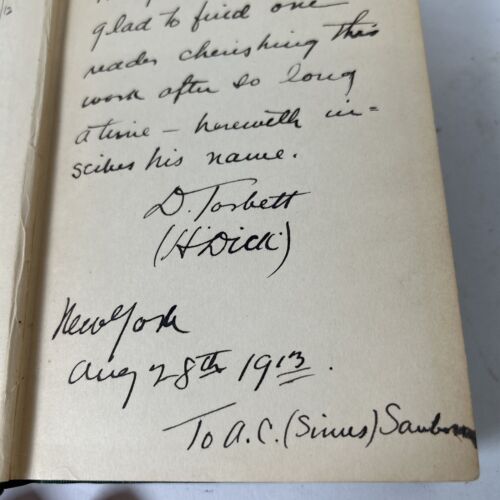 glad to find one
reader cherishing this
work after so long
a time – herewith in=
scribes his name.
D. Torbett
("Dick")
New York
Aug 28th 1913.
To A.C. (Simus) Sanborn